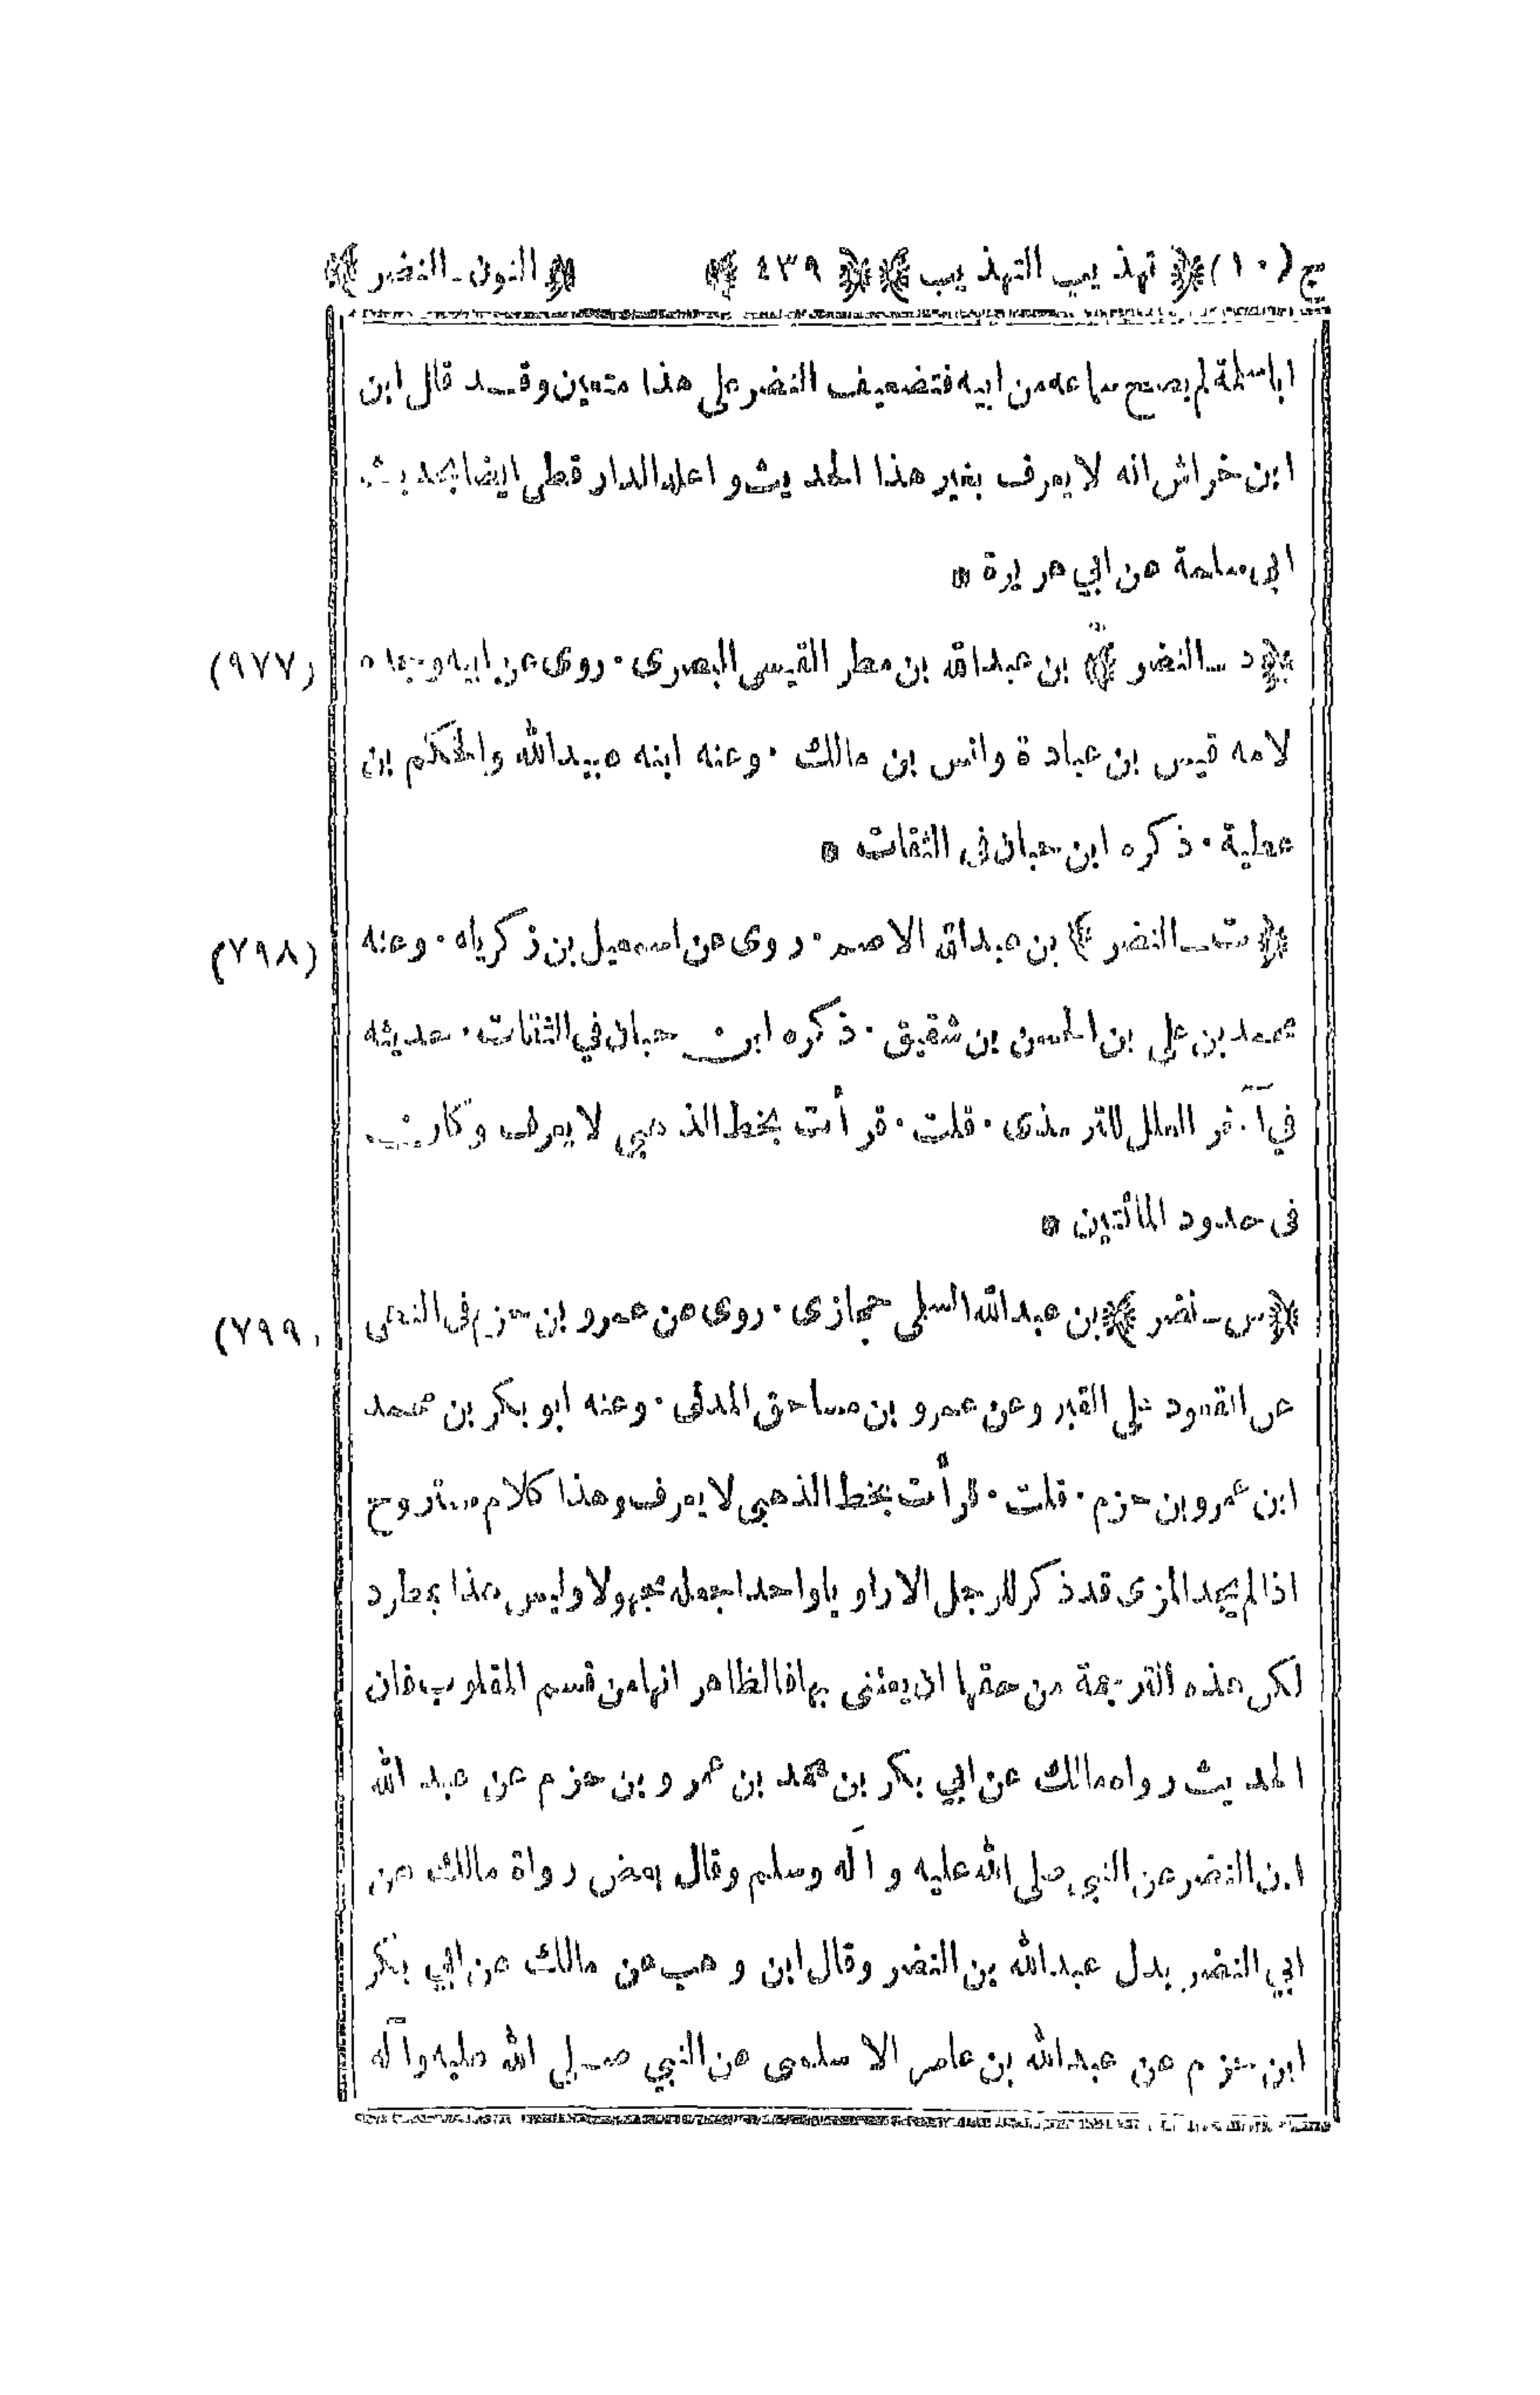 ج (١٠) ﴿ تهذيب التهذيب ﴾ ﴿ ٤٣٩ ﴾ ﴿ النون ـ النضر ﴾
اباسلمة لم يصح سماعه من ابيه فتضعيف النضر على هذا متعين وقد قال ابن
ابن خراش انه لا يعرف بغير هذا الحديث و اعله الدار قطى ايضا بحديث
ابى سلمة عن ابي هريرة *
﴿ د ـ النضر ﴾ بن عبدالله بن مطر القيسى البصرى ٠ روى عن ابيه وجده (٩٧٧)
لامه قيس بن عبادة وانس بن مالك ٠ وعنه ابنه عبيدالله والحكم بن
عطية ٠ ذكره ابن حبان فى الثقات *
﴿ ت ـ النضر ﴾ بن عبدالله الاصم ٠ روى عن اسمعيل بن زكرياء ٠ وعنه (٧٩٨)
محمد بن على بن الحسن بن شقيق ٠ ذكره ابن حبان في الثقات ٠ حديثه
في آخر العلل للترمذى ٠ قلت ٠ قرأت بخط الذهبي لا يعرف وكان
فى حدود المائتين *
﴿ س ـ نضر ﴾ بن عبدالله السلمى حجازى ٠ روى عن عمرو بن حزم فى النهى (٧٩٩)
عن القعود على القبر وعن عمرو بن مساحق المدنى ٠ وعنه ابو بكر بن محمد
ابن عمرو بن حزم ٠ قلت ٠ قرأت بخط الذهبى لا يعرف وهذا كلام مستروح
اذا لم يجد المزى قد ذكر للرجل الا راويا واحدا جعله مجهولا وليس هذا بمطرد
لكن هذه الترجمة من حقها ان يعتنى بها فالظاهر انها من قسم المقلوب فان
الحديث رواه مالك عن ابي بكر بن محمد بن عمرو بن حزم عن عبد الله
ابن النضر عن النبى صلى الله عليه و آله وسلم وقال بعض رواة مالك عن
ابي النضر بدل عبدالله بن النضر وقال ابن وهب عن مالك عن ابي بكر
ابن حزم عن عبدالله بن عامر الاسلمى عن النبي صلى الله عليه وآله